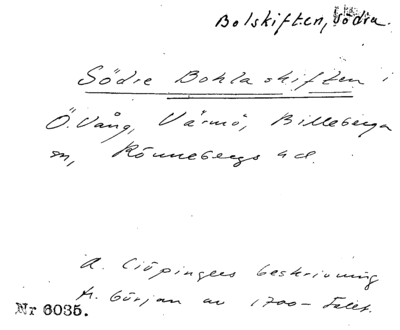 Bolskiften, Södra.
Södre Bohlaskiften i
Ö. Vång, Värmö, Billeberga
m, Rönnebergs hd.
A. Ciöpingers beskrivning
fr. början av 1700-talet.
Nr 6035.